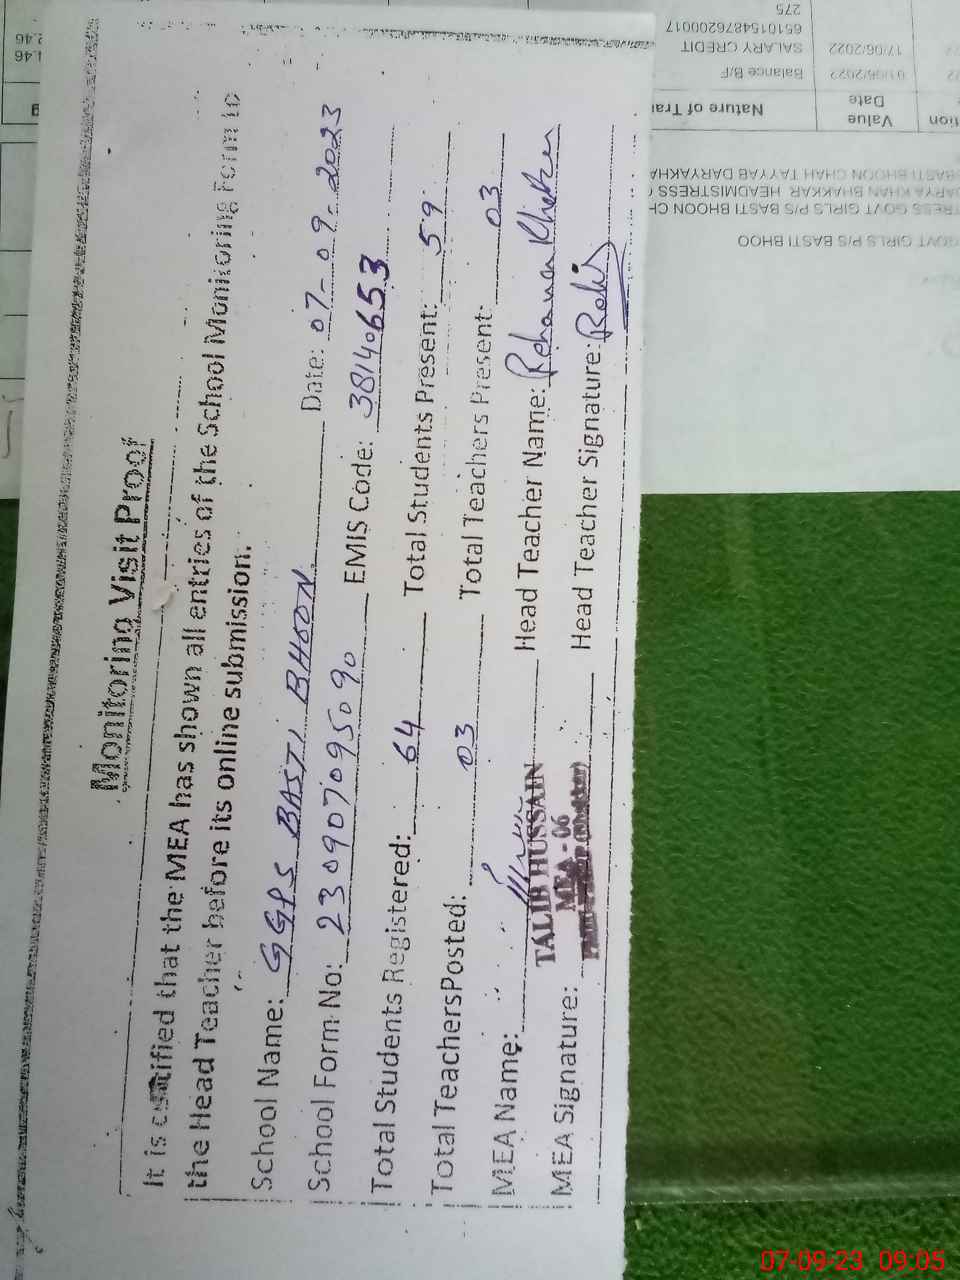 Monitoring Visit Proof
It is certified that the MEA has shown all entries of the School Monitoring Form to
the Head Teacher before its online submission.
School Name: GGPS BASTI BHOON Date: 07-09-2023
School Form No: 230907095090 EMIS Code: 38140653
Total Students Registered: 64 Total Students Present: 59
Total TeachersPosted: 03 Total Teachers Present: 03
MEA Name: Head Teacher Name: Rehana Kher
TALIB HUSSAIN
MEA - 06
MEA Signature: Head Teacher Signature:
Value
Date
Nature of Tra
01/06/2022 Balance B/F
17/06/2022 SALARY CREDIT
6510154876200017
275
GOVT GIRLS P/S BASTI BHOO
TRESS GOVT GIRLS P/S BASTI BHOON CH
DARYA KHAN BHAKKAR HEADMISTRESS
BASTI BHOON CHAH TAYYAB DARYAKHA
07-09-23 09:05